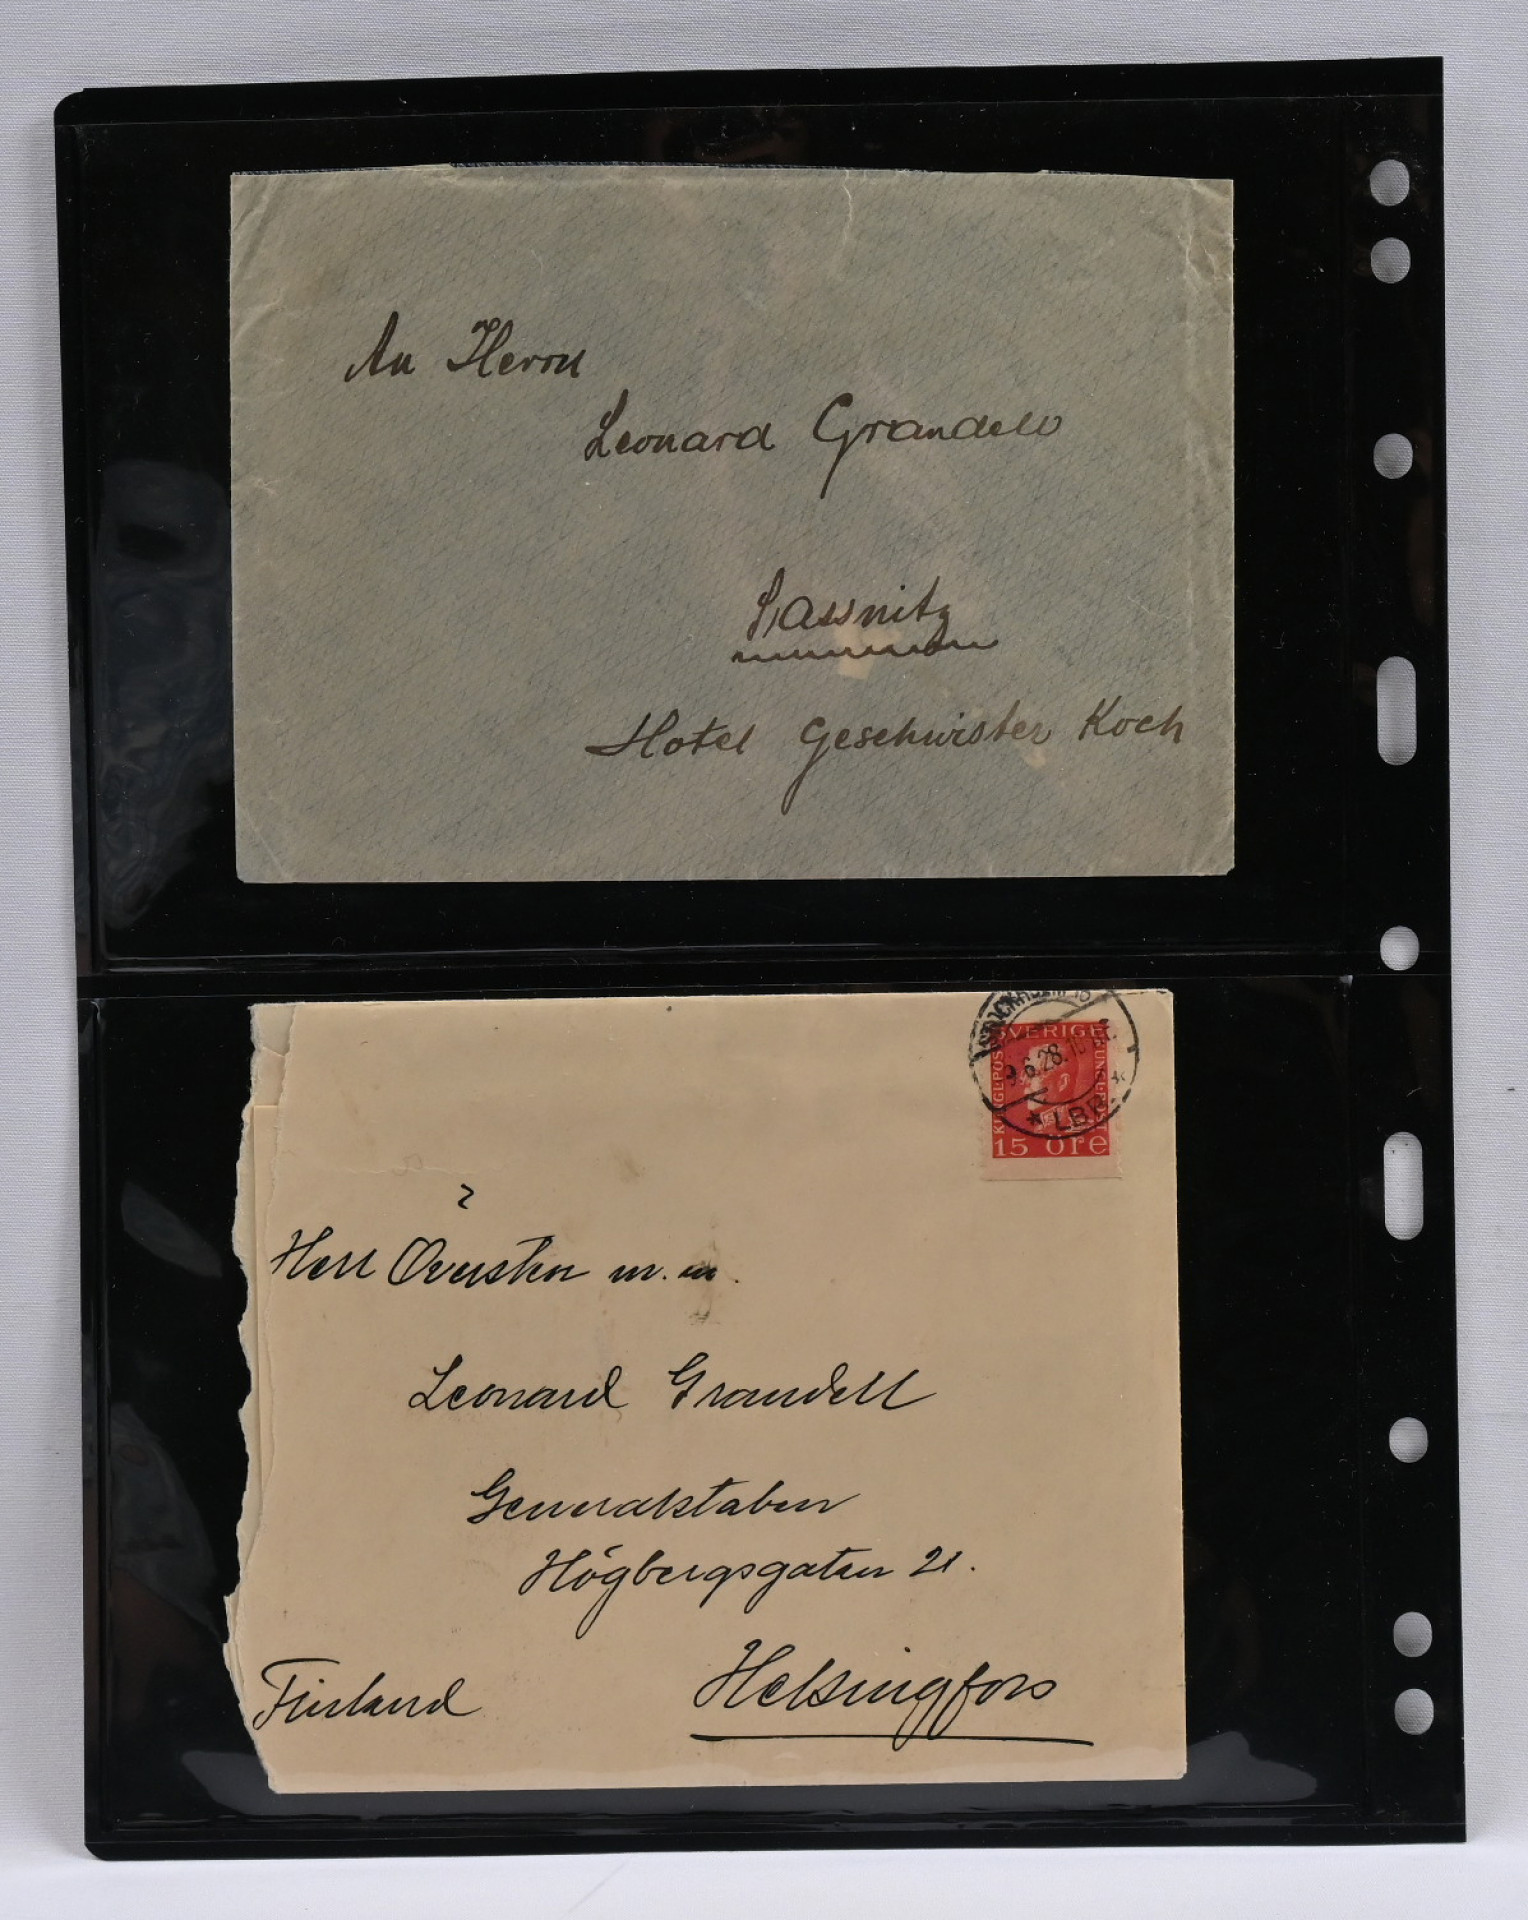 An Herrn
Leonard Grandell
Sassnitz
Hotel Geschwister Koch
STOCKHOLM 16
9.6.28.10
LBR.
SVERIGE
KUNGL. POST
KUNGL. POST
15 öre
Herr Översten m.m.
Leonard Grandell
Generalstaben
Högbergsgatan 21.
Helsingfors
Finland